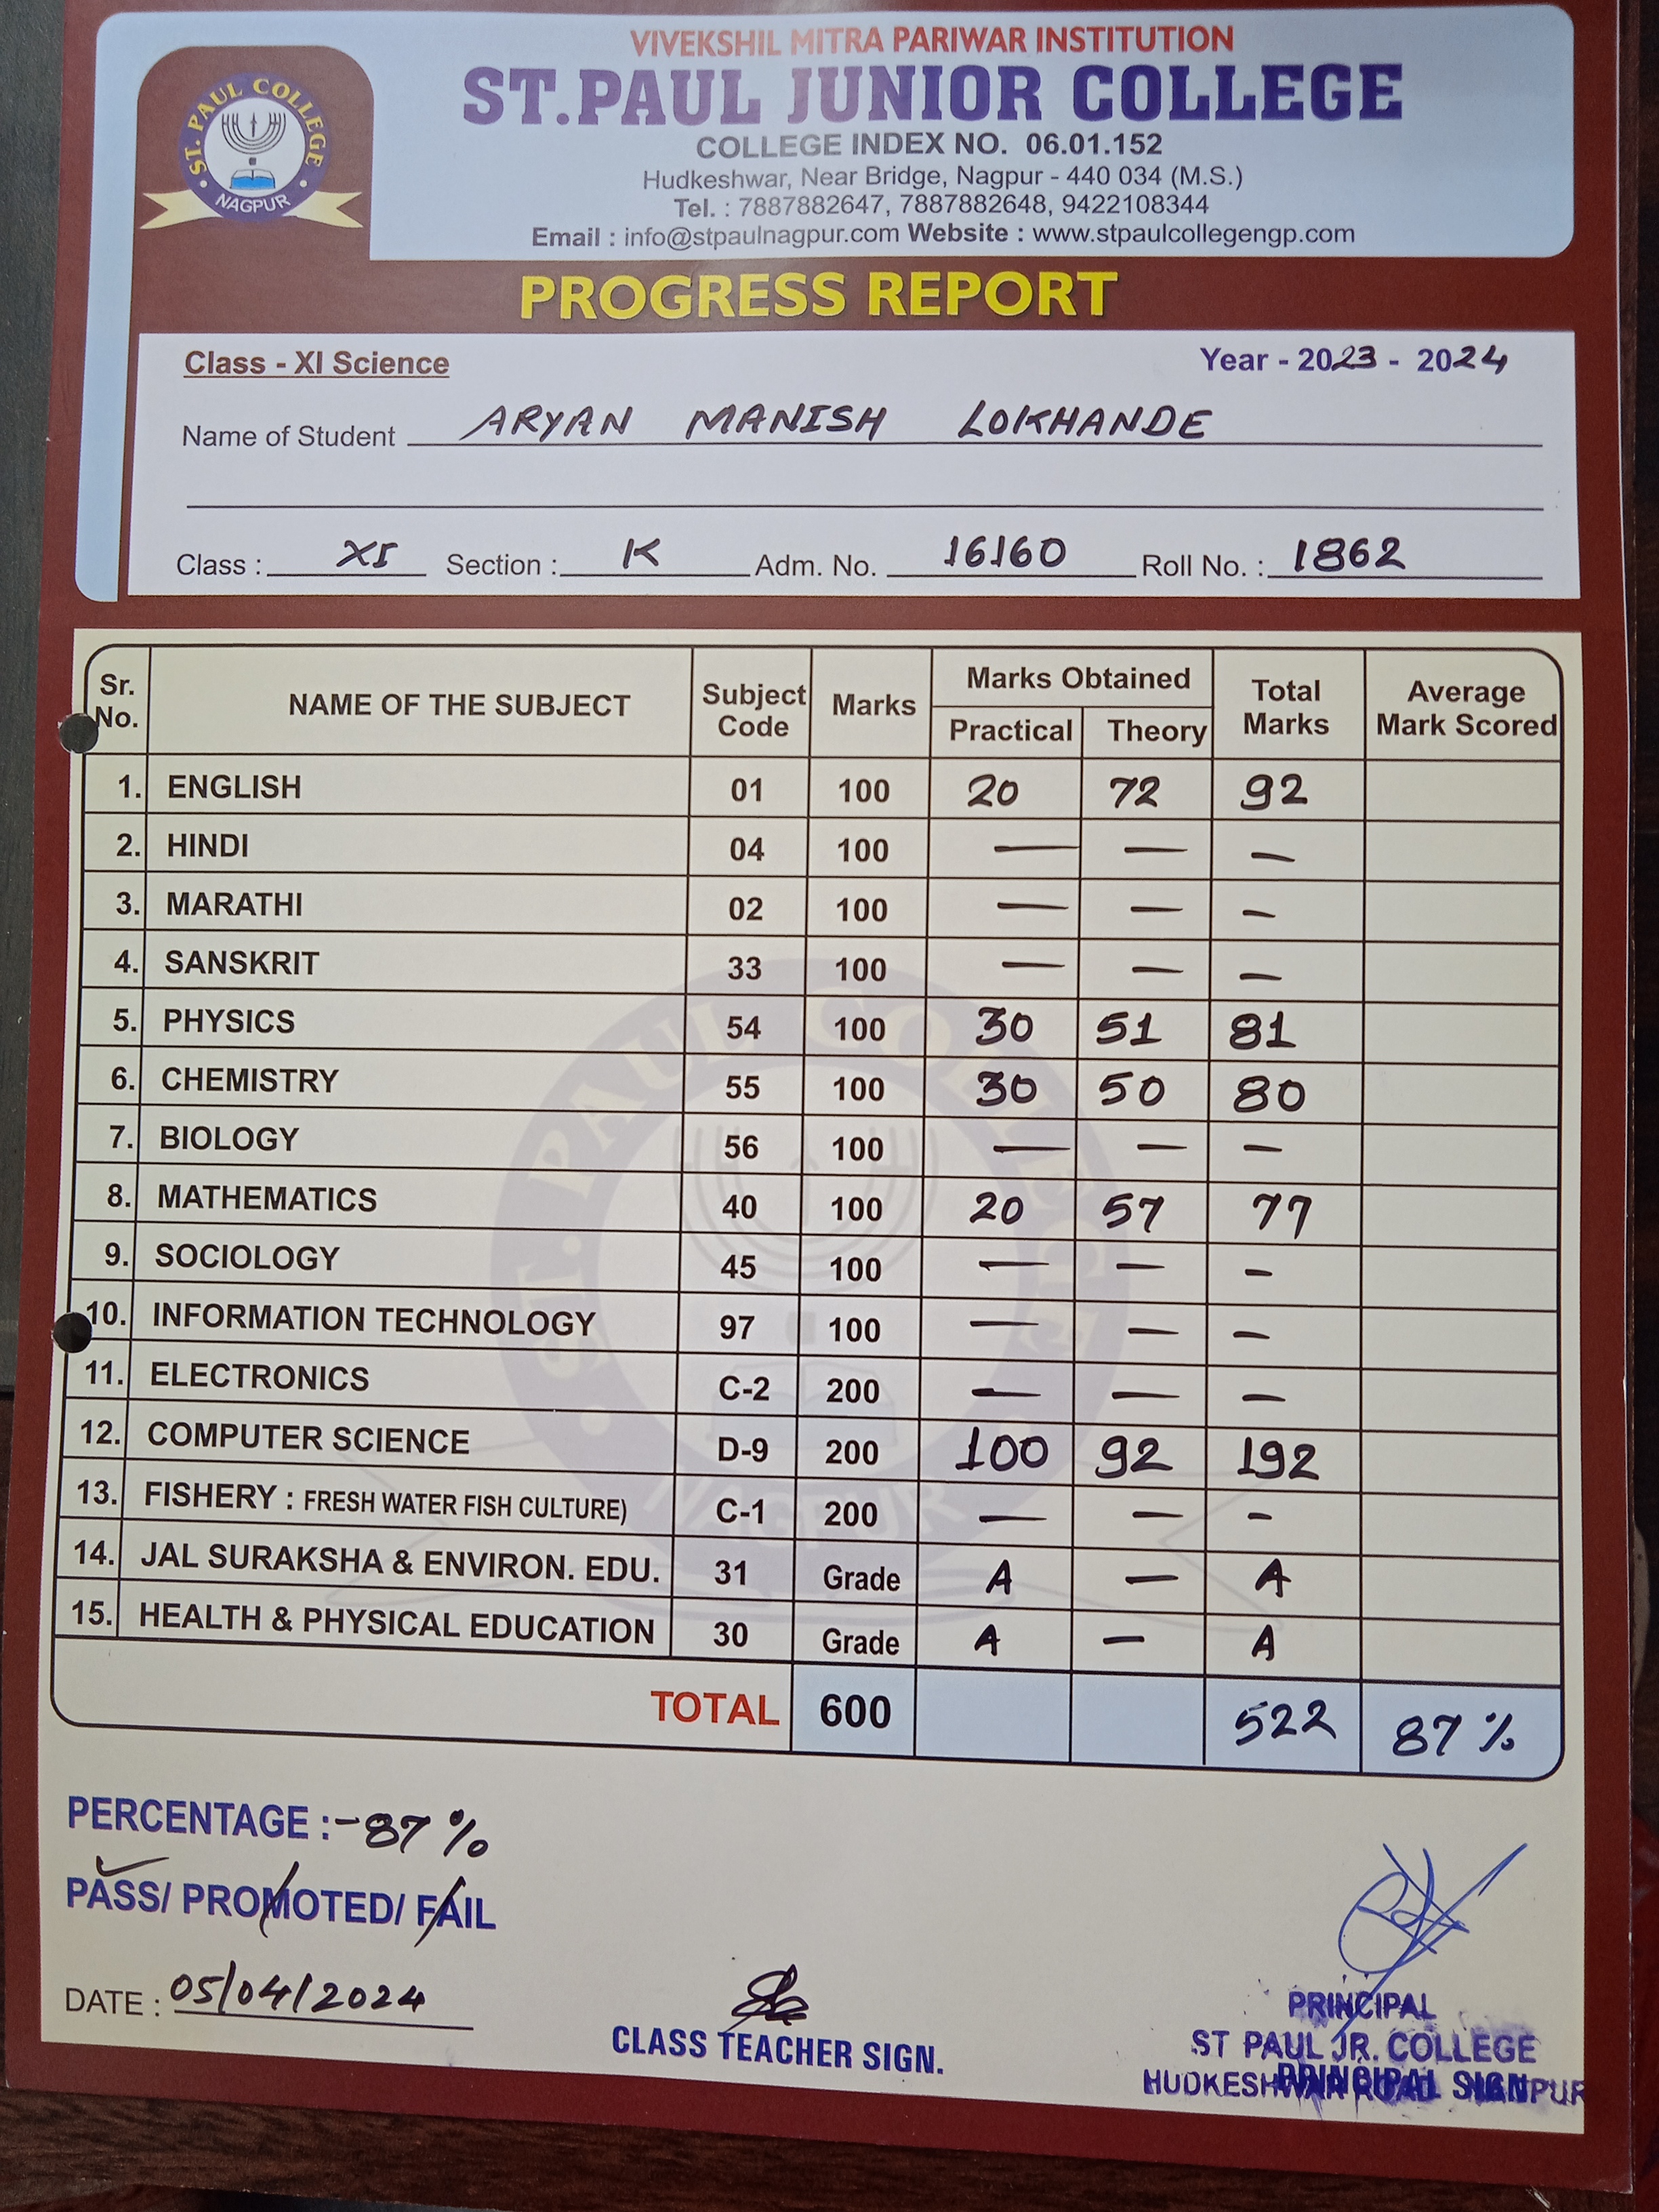 VIVEKSHIL MITRA PARIWAR INSTITUTION
ST.PAUL JUNIOR COLLEGE
COLLEGE INDEX NO. 06.01.152
Hudkeshwar, Near Bridge, Nagpur - 440 034 (M.S.)
Tel. : 7887882647, 7887882648, 9422108344
Email : info@stpaulnagpur.com Website : www.stpaulcollegengp.com
ST. PAUL COLLEGE
NAGPUR
PROGRESS REPORT
Class - XI Science Year - 2023 - 2024
Name of Student ARYAN MANISH LOKHANDE
Class : XI Section : K Adm. No. 16160 Roll No. : 1862
Sr. No. NAME OF THE SUBJECT Subject Code Marks Marks Obtained Practical Theory Total Marks Average Mark Scored
1. ENGLISH 01 100 20 72 92
2. HINDI 04 100 — — —
3. MARATHI 02 100 — — —
4. SANSKRIT 33 100 — — —
5. PHYSICS 54 100 30 51 81
6. CHEMISTRY 55 100 30 50 80
7. BIOLOGY 56 100 — — —
8. MATHEMATICS 40 100 20 57 77
9. SOCIOLOGY 45 100 — — —
10. INFORMATION TECHNOLOGY 97 100 — — —
11. ELECTRONICS C-2 200 — — —
12. COMPUTER SCIENCE D-9 200 100 92 192
13. FISHERY : FRESH WATER FISH CULTURE) C-1 200 — — -
14. JAL SURAKSHA & ENVIRON. EDU. 31 Grade A — A
15. HEALTH & PHYSICAL EDUCATION 30 Grade A — A
TOTAL 600 522 87 %
PERCENTAGE :- 87 %
PASS/ PROMOTED/ FAIL
DATE : 05/04/2024
CLASS TEACHER SIGN.
PRINCIPAL
ST PAUL JR. COLLEGE
HUDKESHWAR ROAD NAGPUR
PRINCIPAL SIGN